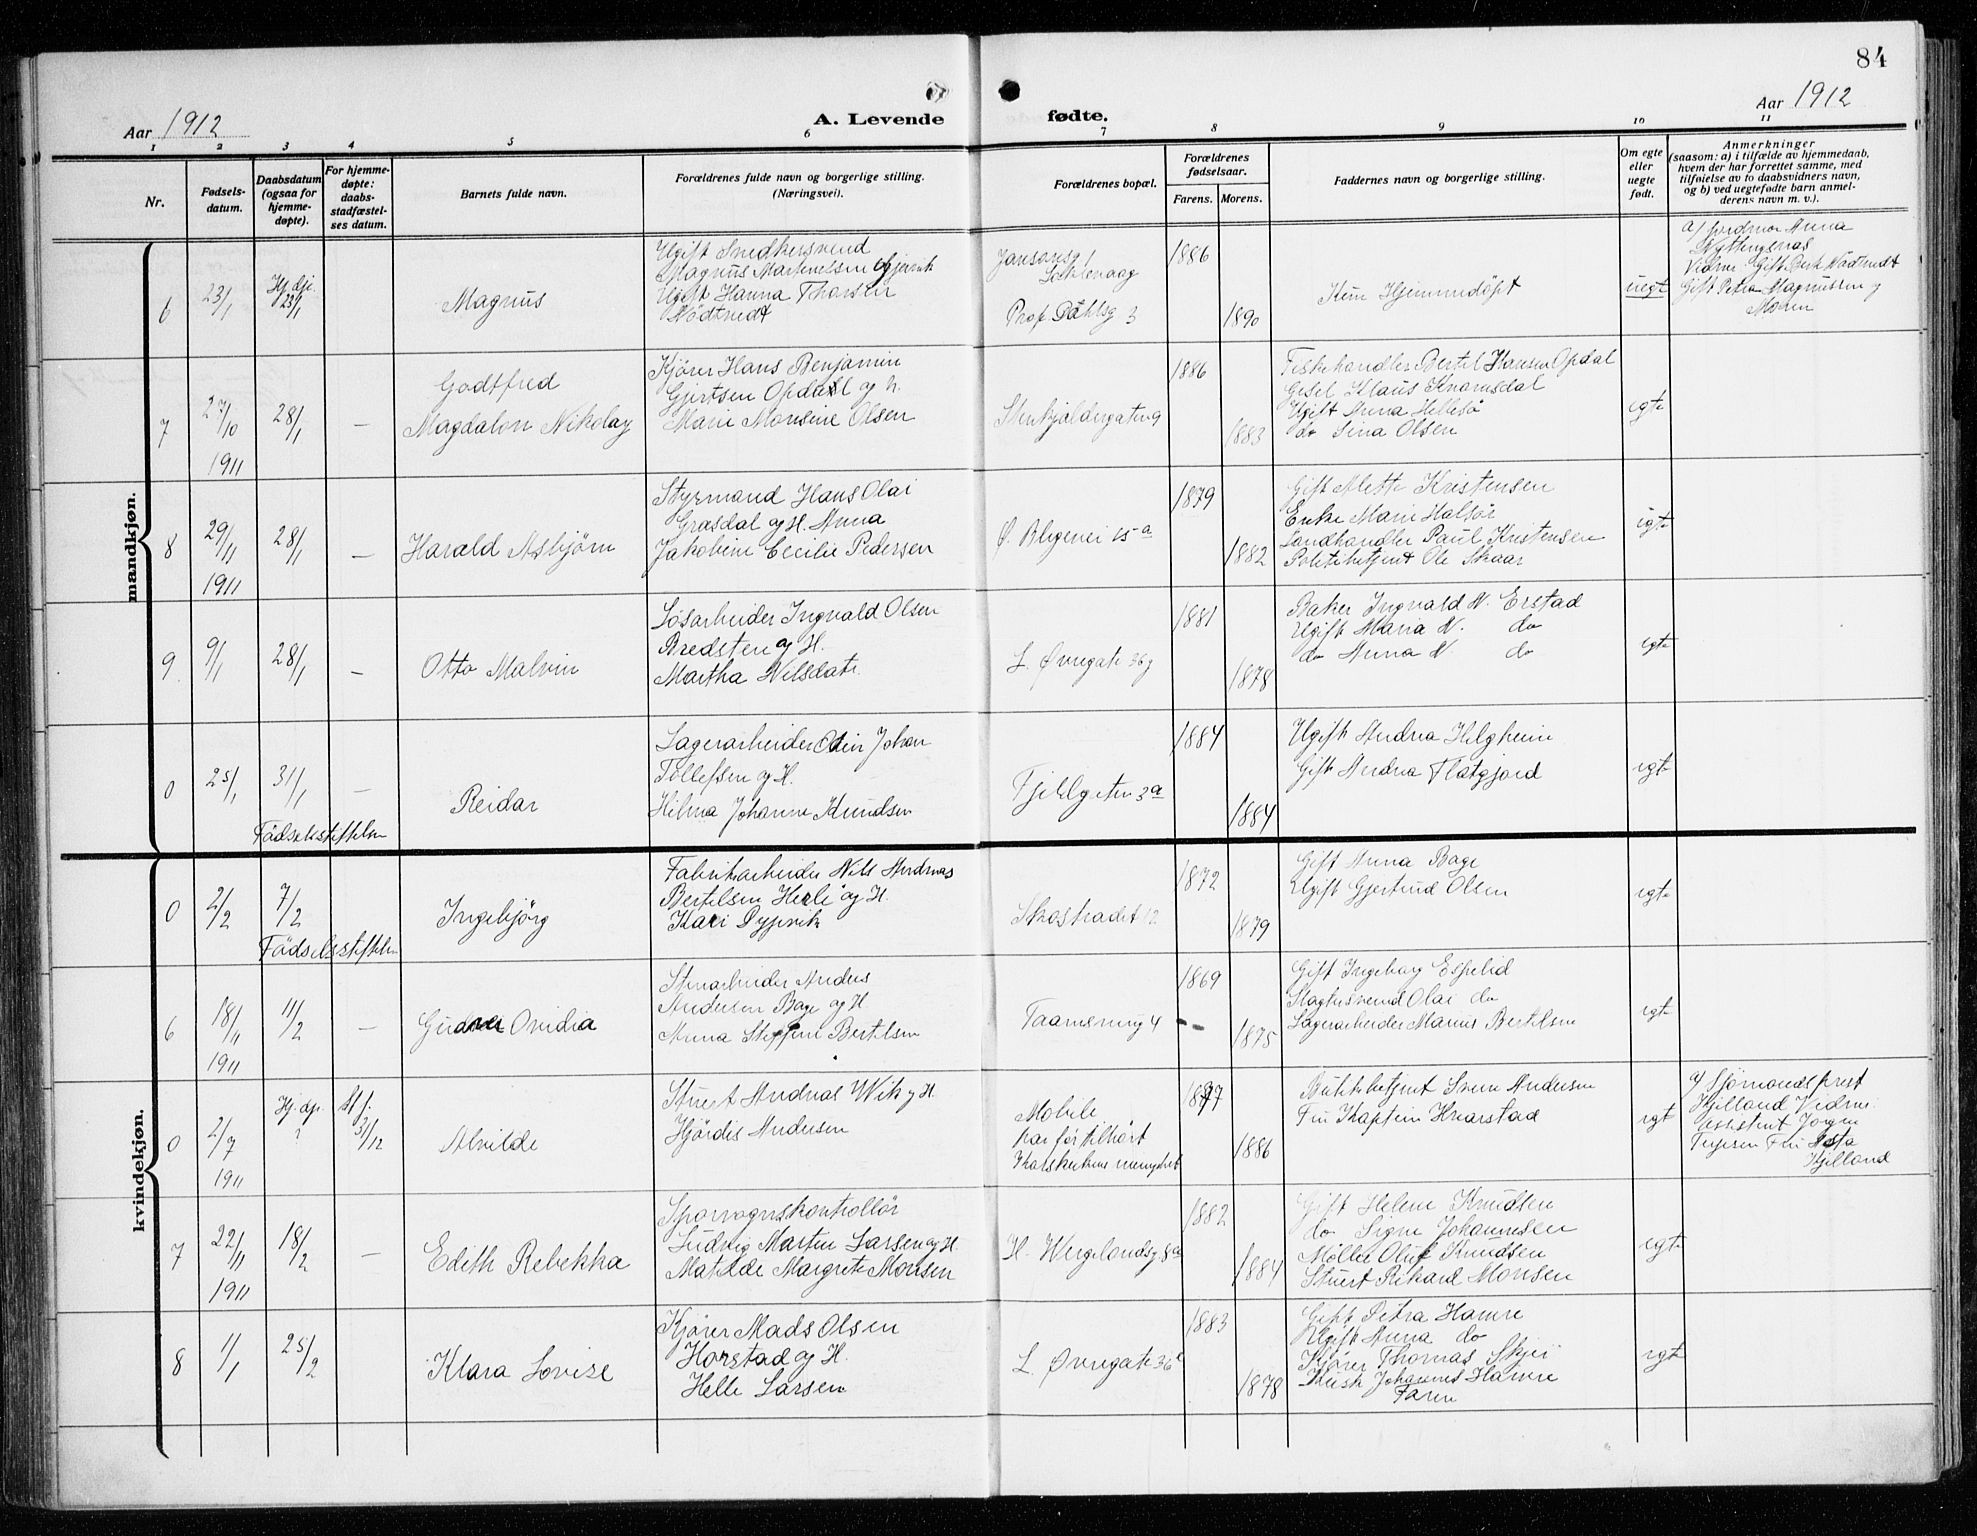 84
Aar 1912
A. Levende
fødte.
Aar 1912
1 2 3 4 5 6 7 8 9 10 11
Nr.
Fødsels-
datum.
Daabsdatum
(ogsaa for
hjemme-
døpte).
For hjemme-
døpte:
daabs-
stadfæstel-
ses datum.
Barnets fulde navn.
Forældrenes fulde navn og borgerlige stilling.
(Næringsvei).
Forældrenes bopæl.
Forældrenes
fødselsaar.
Farens. Morens.
Faddernes navn og borgerlige stilling.
Om egte
eller
uegte
født.
Anmerkninger
(saasom: a) i tilfælde av hjemmedaab,
hvem der har forrettet samme, med
tilføielse av to daabsvidners navn,
og b) ved uegtefødte barn anmel-
derens navn m. v.).
mandkjøn.
6
23/1
Hj. dp.
23/1
Magnus
Ugift Snedkersvend
Magnus Martinelsen Gjervik
Ugift Hanna Thorsen
Nödtvedt
Jansonsg 1
Prof Dahlsg 3
1886
1890
Kun Hjemmedöpt
uegt
a) Jordmor Anna
Gift Petra Magnussen og
Moren
7
27/10
1911
28/1
—
Godtfred
Magdalon Nikolay
Kjörer Hans Benjamin
Gjertsen Opdal og h.
Marie Monsine Olsen
Stenkjeldergaten 9
1886
1883
Fiskehandler Bertil Hansen Opdal
Gesel Klaus Knarvsdal
Ugift Anna Hellesö
do Sina Olsen
egte
8
29/11
1911
28/1
—
Harald Asbjørn
Styrmand Hans Olai
Græsdal og H. Anna
Jakobine Cecilie Pedersen
Ø. Blegevei 15 a
1879
1882
Gift Alette Kristensen
Enke Marie Halsör
Landhandler Paul Kristensen
Politibetjent Ole Skaar
egte
9
9/1
28/1
—
Otto Malvin
Løsarbeider Ingvald Olsen
Bredsten og H.
Martha Nilsdatr.
L. Øvregate 36 g
1881
1878
Baker Ingvald N. Erstad
Ugift Maria N. do
do Anna N. do
egte
0
25/1
31/1
—
Födselsstiftelsen
Reidar
Lagerarbeider Odin Johan
Tollefsen og H.
Hilma Johanne Knudsen
Fjeldgaten 3 a
1884
1884
Ugift Andrea Helgheim
Gift Andrea Flatgjord
egte
kvindekjøn.
0
2/2
7/2
Födselsstiftelsen
Ingebjörg
Fabrikarbeider Nils Andreas
Bertelsen Herle og H.
Kari Dyrvik
Skostrædet 12
1872
1879
Gift Anna Bage
Ugift Gjertrud Olsen
egte
6
18/11
1911
11/2
—
Gudrun Ovidia
Stenarbeider Anders
Andersen Bage og H
Anna Steffine Bertelsen
Taarnsmug 4
1869
1875
Gift Ingeborg Espelid
Slagtersvend Olai do
Lagerarbeider Marius Bertelsen
egte
0
2/7
1911
Hj. dp.
?
St f.
3/12
Alvilde
Stuert Andreas Wik og H
Hjördis Andersen
Mobile
har før tilhört
Korskirkens menighet
1877
1886
Butikbetjent Sven Andersen
Fru Kaptein Knarstad
egt
a) Sjömandsprest
Kjelland Vidner:
Assistent Jørgen
Kjelland
7
22/11
1911
18/2
—
Edith Rebekka
Sporvognskontrollör
Ludvig Martin Larsen og H.
Matilde Margrete Monsen
H. Wergelandsg 8 a
1882
1884
Gift Helene Knudsen
do Signe Johannesen
Møller Oluf Knudsen
Stuert Rikard Monsen
egte
8
1/1
25/2
Klara Lovise
Kjörer Mads Olsen
Horstad og H.
Helle Larsen
L. Øvregate 36 c
1883
1878
Gift Petra Hamre
Ugift Anna do
Kjörer Thomas Skjei
Johannes Hamre
Faren
egte